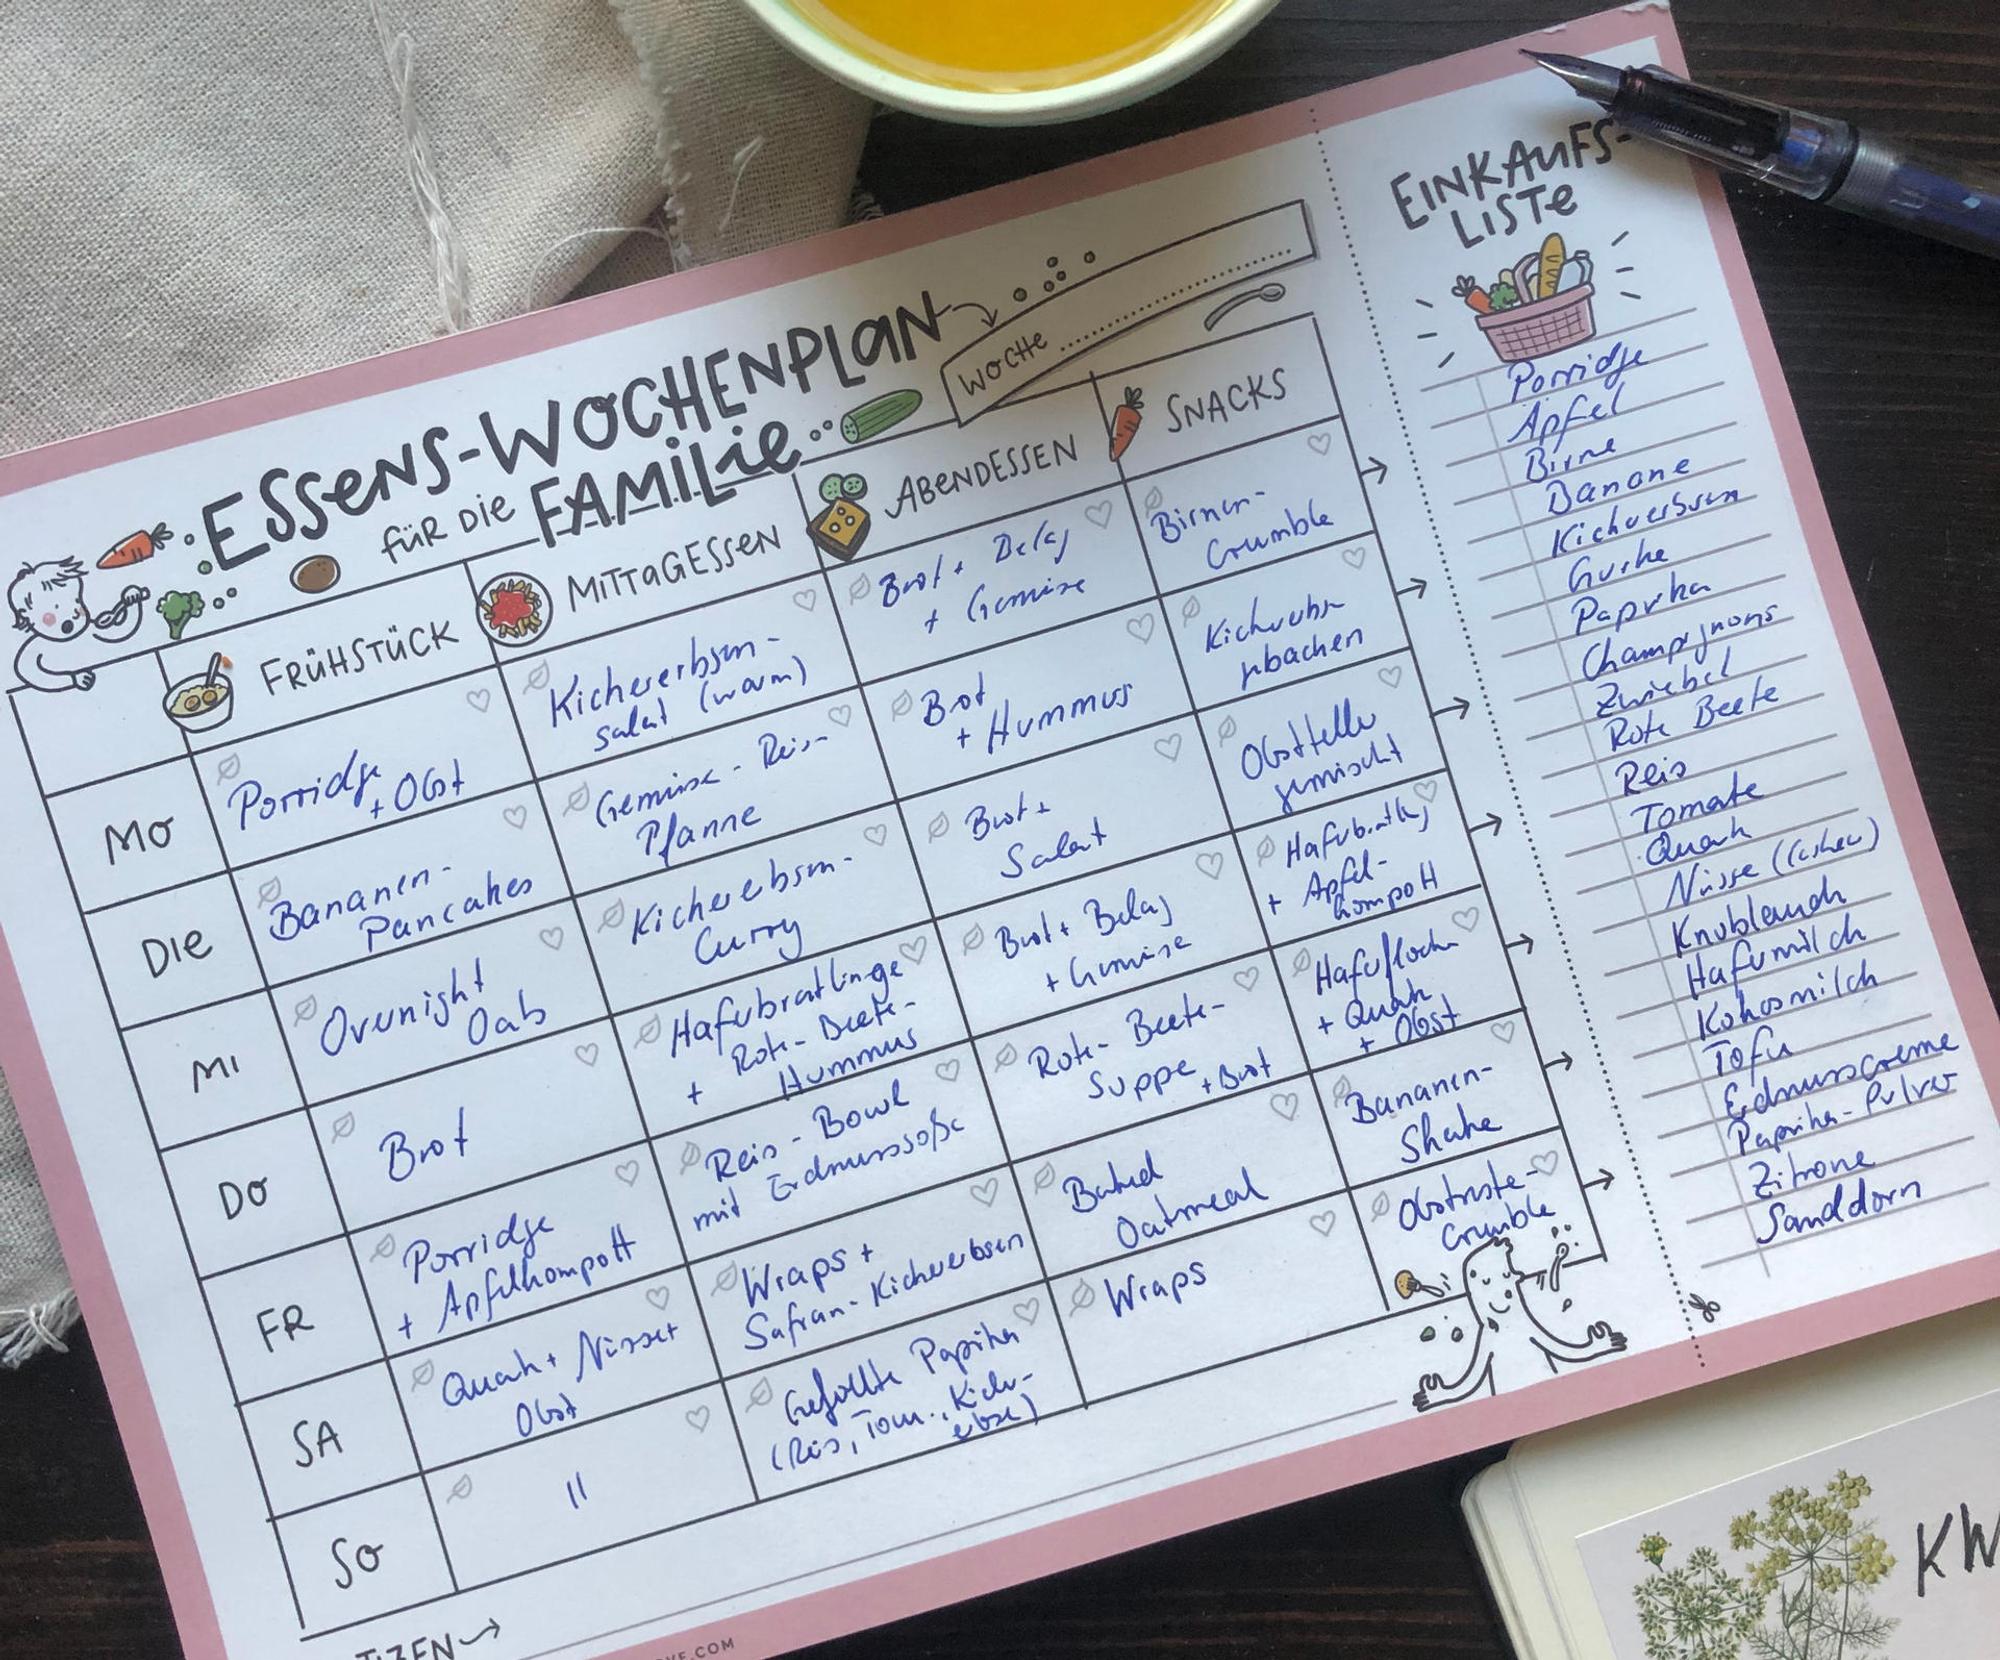 ESSENS-WOCHENPLAN
FÜR DIE FAMILIE
WOCHE
FRÜHSTÜCK
MITTAGESSEN
ABENDESSEN
SNACKS
MO
Porridge
+ Obst
Kichererbsen-
salat (warm)
Brot + Belag
+ Gemüse
Birnen-
Crumble
DIE
Bananen-
Pancakes
Gemüse-Reis-
Pfanne
Brot
+ Hummus
Kichererbsen
gebacken
MI
Overnight
Oats
Kichererbsen-
Curry
Brot +
Salat
Obstteller
gemischt
DO
Brot
Haferbratlinge
+ Rote-Beete-
Hummus
Brot + Belag
+ Gemüse
Haferbratling
+ Apfel-
kompott
FR
Porridge
+ Apfelkompott
Reis-Bowl
mit Erdnusssoße
Rote-Beete-
Suppe + Brot
Haferflocken
+ Quark
+ Obst
SA
Quark + Nüsse +
Obst
Wraps +
Safran-Kichererbsen
Baked
Oatmeal
Bananen-
Shake
SO
"
Gefüllte Paprika
(Reis, Tom., Kicher-
erbse)
Wraps
Obstreste-
Crumble
EINKAUFS-
LISTE
Porridge
Äpfel
Birne
Banane
Kichererbsen
Gurke
Paprika
Champignons
Zwiebel
Rote Beete
Reis
Tomate
Quark
Nüsse (Cashew)
Knoblauch
Hafermilch
Kokosmilch
Tofu
Erdnusscreme
Paprika-Pulver
Zitrone
Sanddorn
TIZEN
VE.COM
KW